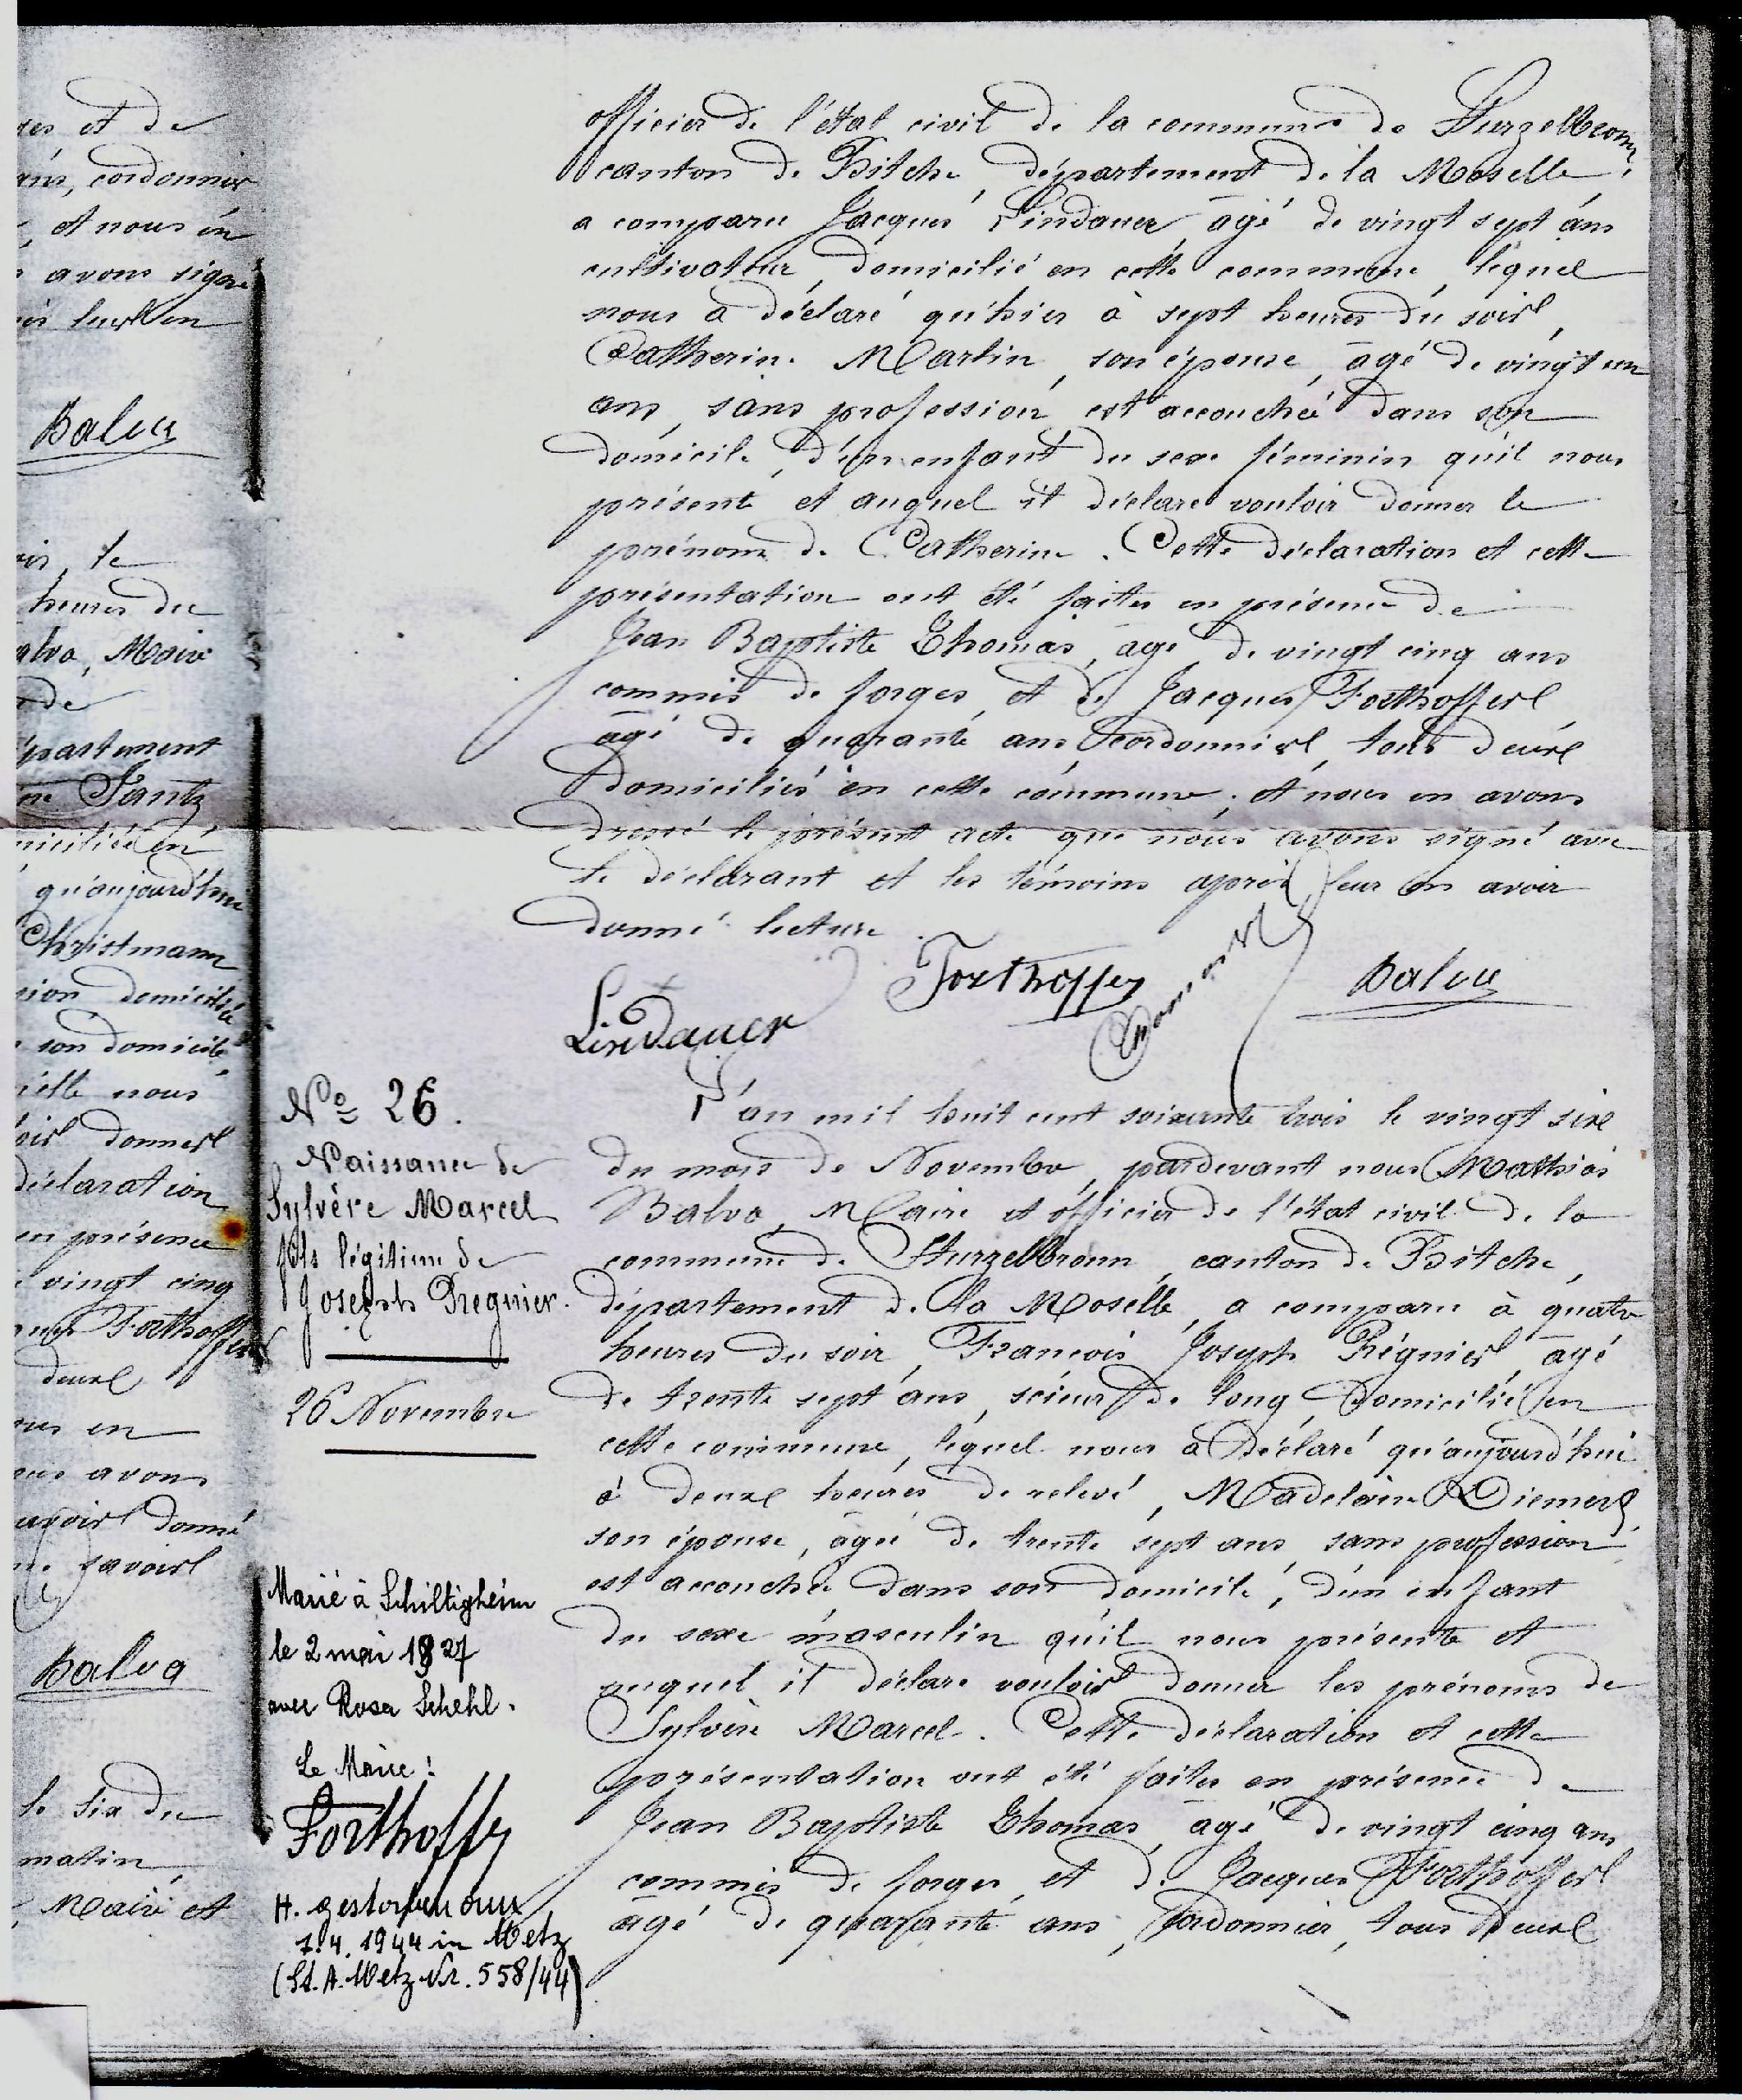 tes et de
ans, cordonnier
et nous en
avons signé
leur en
Balva
le
heures du
alva, Maire
de
partement
ne Jantz
miciliée en
qu'aujourd'hui
Christmann
sion domiciliée
son domicile
elle nous
oir donner
déclaration
en présence
vingt cinq
ques Forthoffer
deux
nous en
ous avons
avoir donné
ne savoir
Balva
le six du
matin
Maire et
officier de l'état civil de la commune de Sturzelbronn,
canton de Bitche, département de la Moselle,
a comparu Jacques Lindauer âgé de vingt sept ans
cultivateur, domicilié en cette commune, lequel
nous a déclaré qu'hier à sept heures du soir,
Catherine Martin, son épouse, âgé de vingt un
ans, sans profession est accouchée dans son
domicile, d'un enfant du sexe féminin qu'il nous
présente et auquel il déclare vouloir donner le
prénom de Catherine. Cette déclaration et cette
présentation ont été faites en présence de
Jean Baptiste Thomas, âgé de vingt cinq ans
commis de forges, et de Jacques Forthoffer
âgé de quarante ans, cordonnier, tous deux
domiciliés en cette commune, et nous en avons
dressé le présent acte que nous avons signé avec
le déclarant et les témoins après leur en avoir
donné lecture.
Lindauer Forthoffer Balva
No 26.
Naissance de
Sylvère Marcel
fils légitime de
Joseph Pregnier.
26 Novembre
Marié à Schiltigheim
le 2 mai 1927
avec Rosa Schehl.
Le Maire:
Forthoffer
H. gestorben am
7.4.1944 in Metz
(St. A. Metz Nr. 558/44)
L'an mil huit cent soixante trois le vingt six
du mois de Novembre, pardevant nous Mathias
Balva, Maire et officier de l'état civil de la
commune de Sturzelbronn, canton de Bitche,
département de la Moselle, a comparu à quatre
heures du soir, François Joseph Prégnier, âgé
de trente sept ans, scieur de long, domicilié en
cette commune, lequel nous a déclaré qu'aujourd'hui
à deux heures de relevé, Madelaine Diemer,
son épouse, âgée de trente sept ans, sans profession
est accouchée dans son domicile, d'un enfant
du sexe masculin qu'il nous présente et
auquel il déclare vouloir donner les prénoms de
Sylvère Marcel. Cette déclaration et cette
présentation ont été faites en présence de
Jean Baptiste Thomas, âgé de vingt cinq ans
commis de forges, et de Jacques Forthoffer
âgé de quarante ans, cordonnier, tous deux